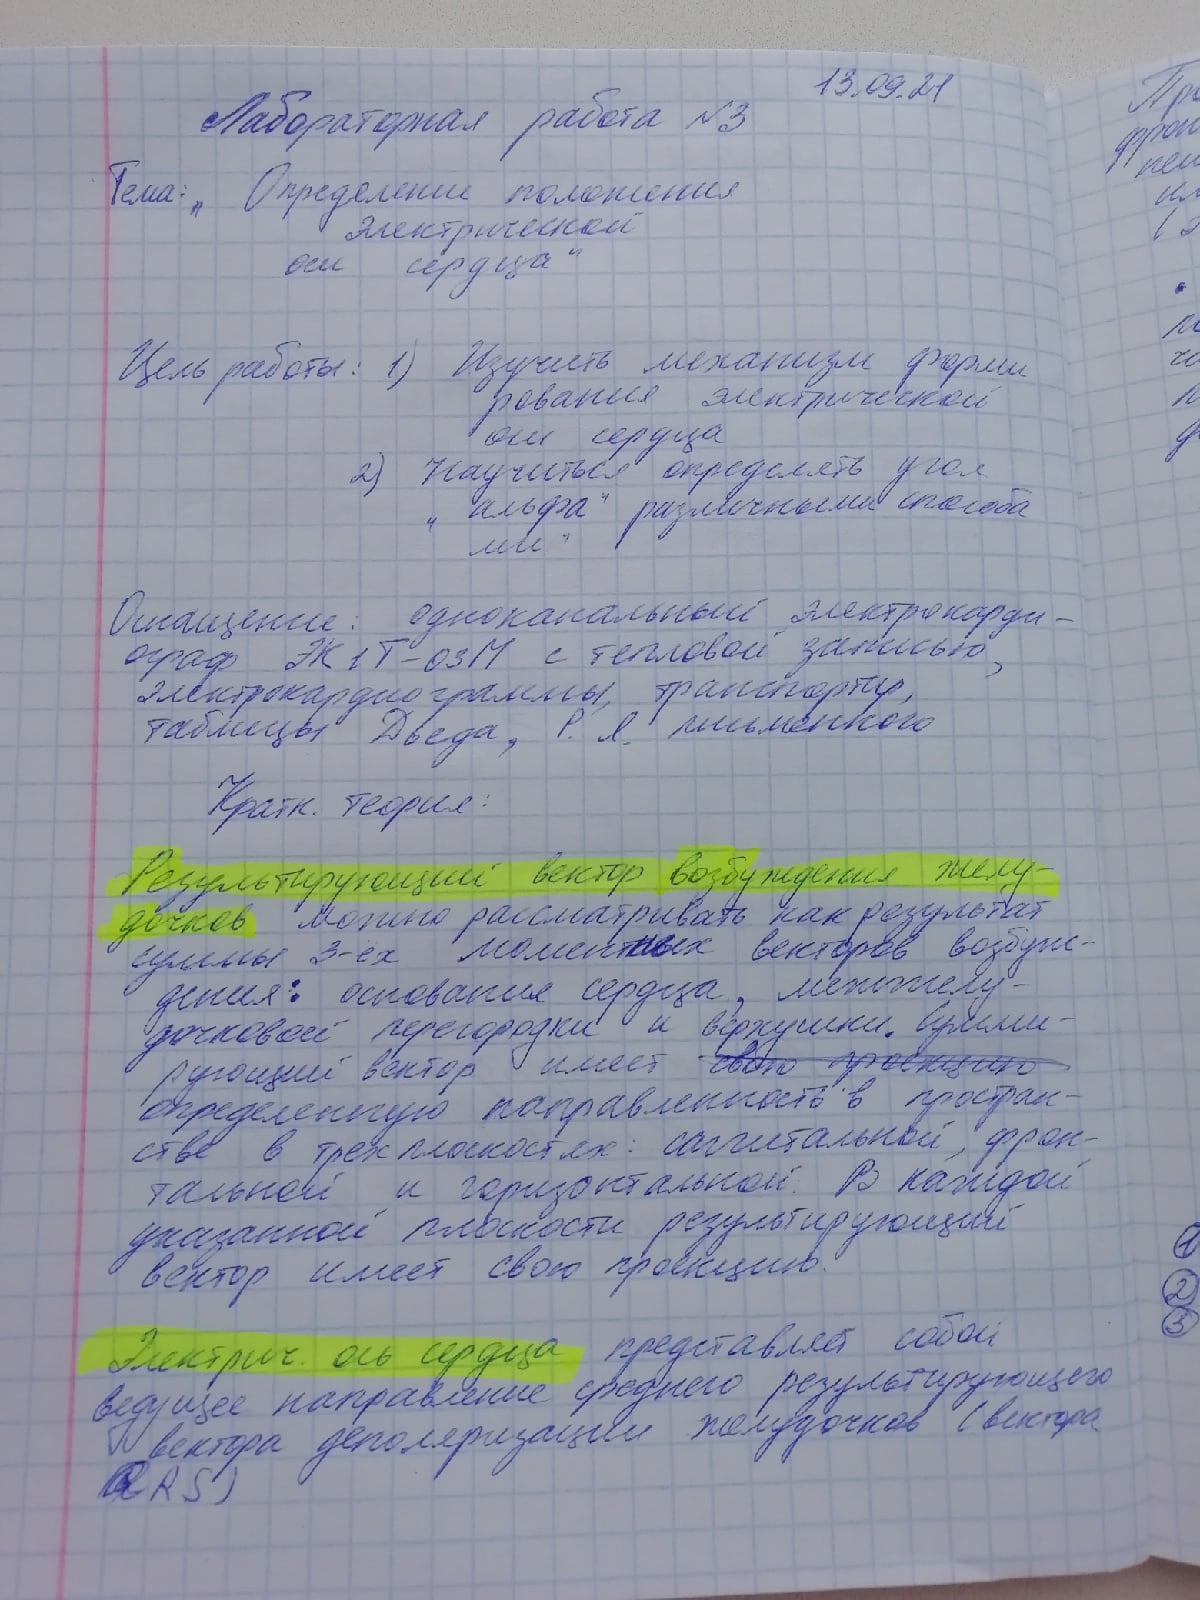 13.09.21
Лабораторная работа №3
Тема: „ Определение положения
электрической
оси сердца"
Цель работы: 1) Изучить механизм форми
рования электрической
оси сердца
2) Научиться определять угол
„ альфа" различными способа
ми"
Оснащение: одноканальный электрокарди-
ограф ЭК1Т-03М с тепловой записью,
электрокардиограммы, транспортир,
таблицы Дьеда, Р. Я. Письменного
Кратк. теория:
Результирующий вектор возбуждения желу-
дочков можно рассматривать как результат
суммы 3-ёх моментных векторов возбуж-
дения: основания сердца, межжелу-
дочковой перегородки и верхушки. Сумми-
рующий вектор имеет свою проекцию
определенную направленность в простран-
стве в трех плоскостях: саггитальной, фрон-
тальной и горизонтальной. В каждой
указанной плоскости результирующий
вектор имеет свою проекцию.
Электрич. ось сердца представляет собой
ведущее направление среднего результирующего
вектора деполяризации желудочков (вектора
QRS)
1
2
3